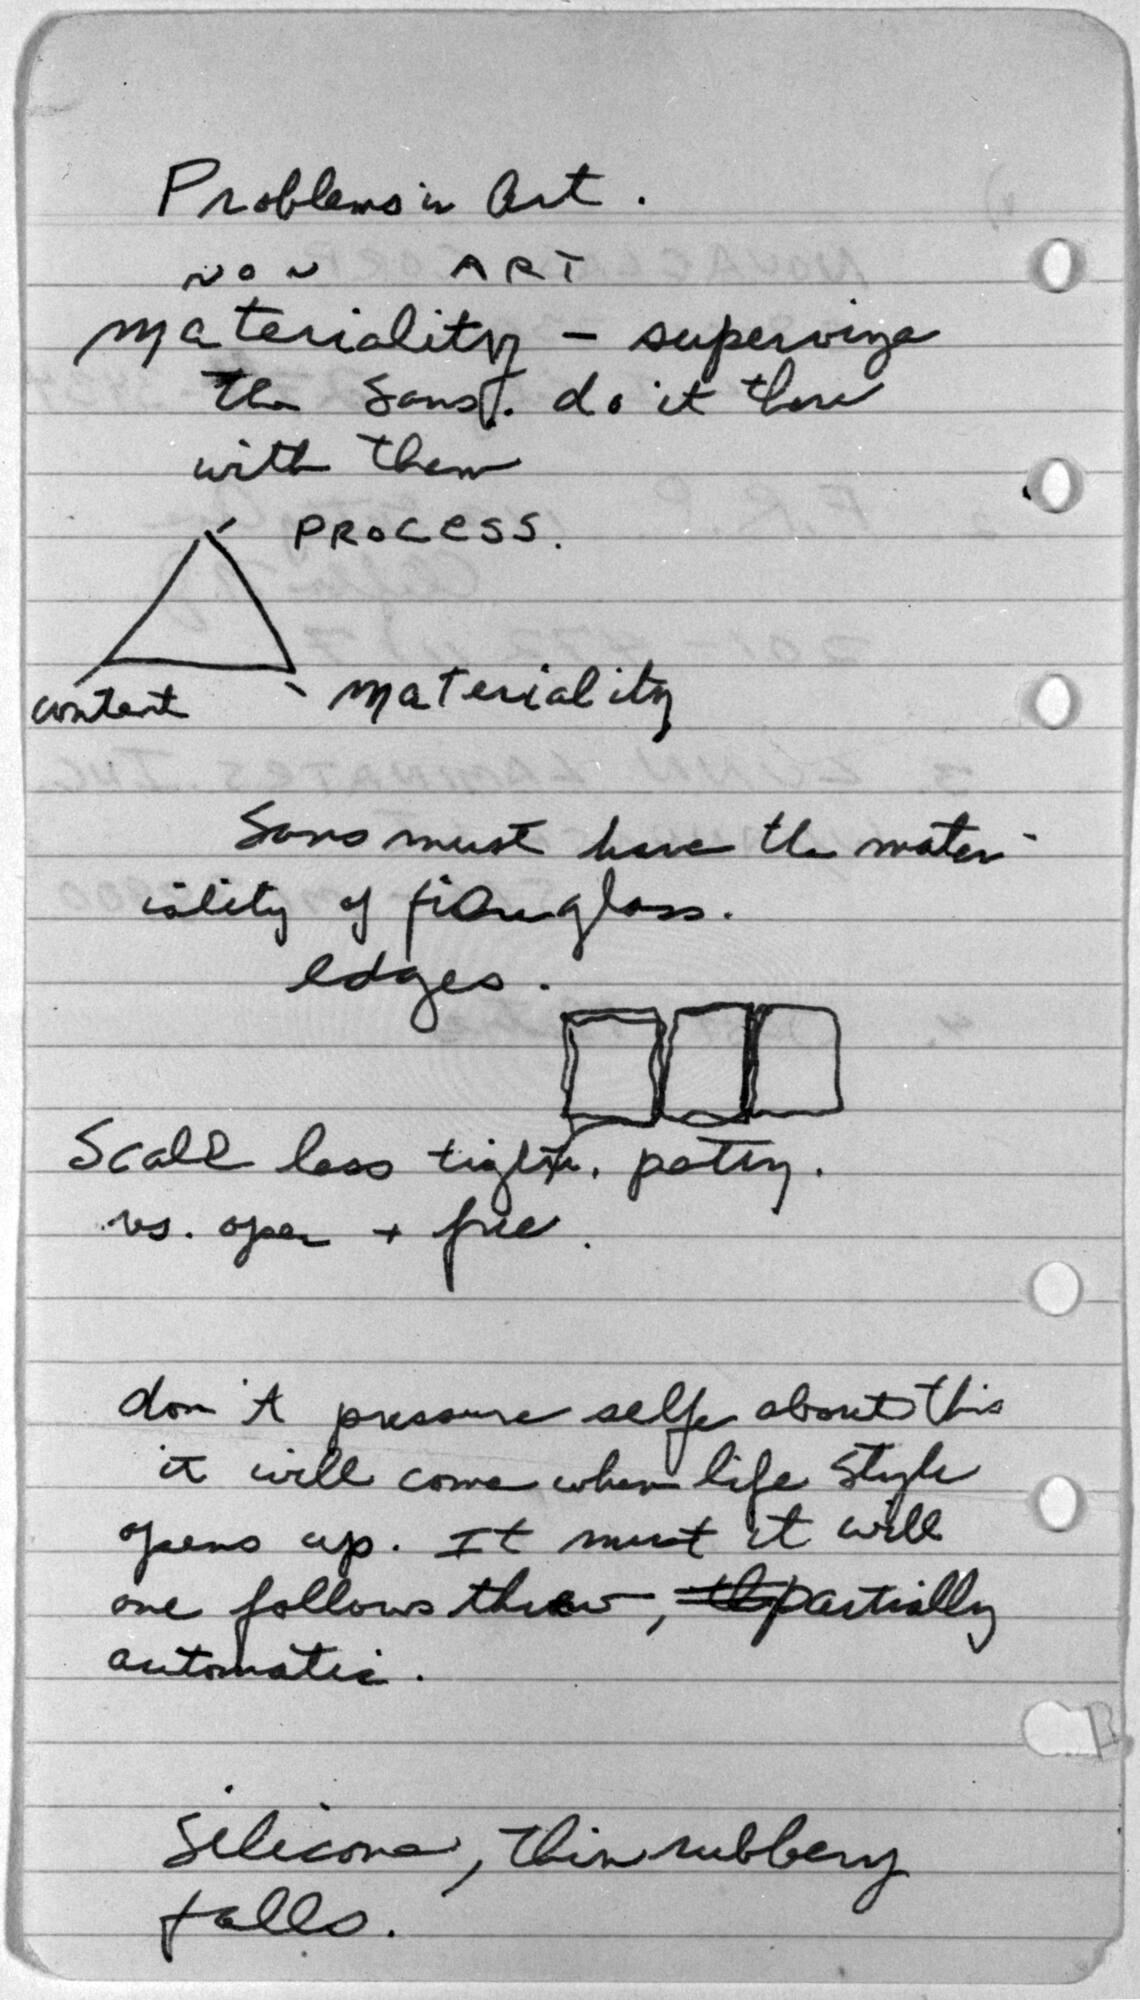 Problems in Art.
NON ART
Materiality – supervize
the Sans. do it there
with them
PROCESS.
content
Materiality
Sans must have the mater
iality of fiberglass.
edges.
Scale less tight.
vs. open + free.
don't pressure self about this
it will come when life style
opens up. It must it will
one follows threw, partially
automatic.
Silicone, thin rubbery
falls.